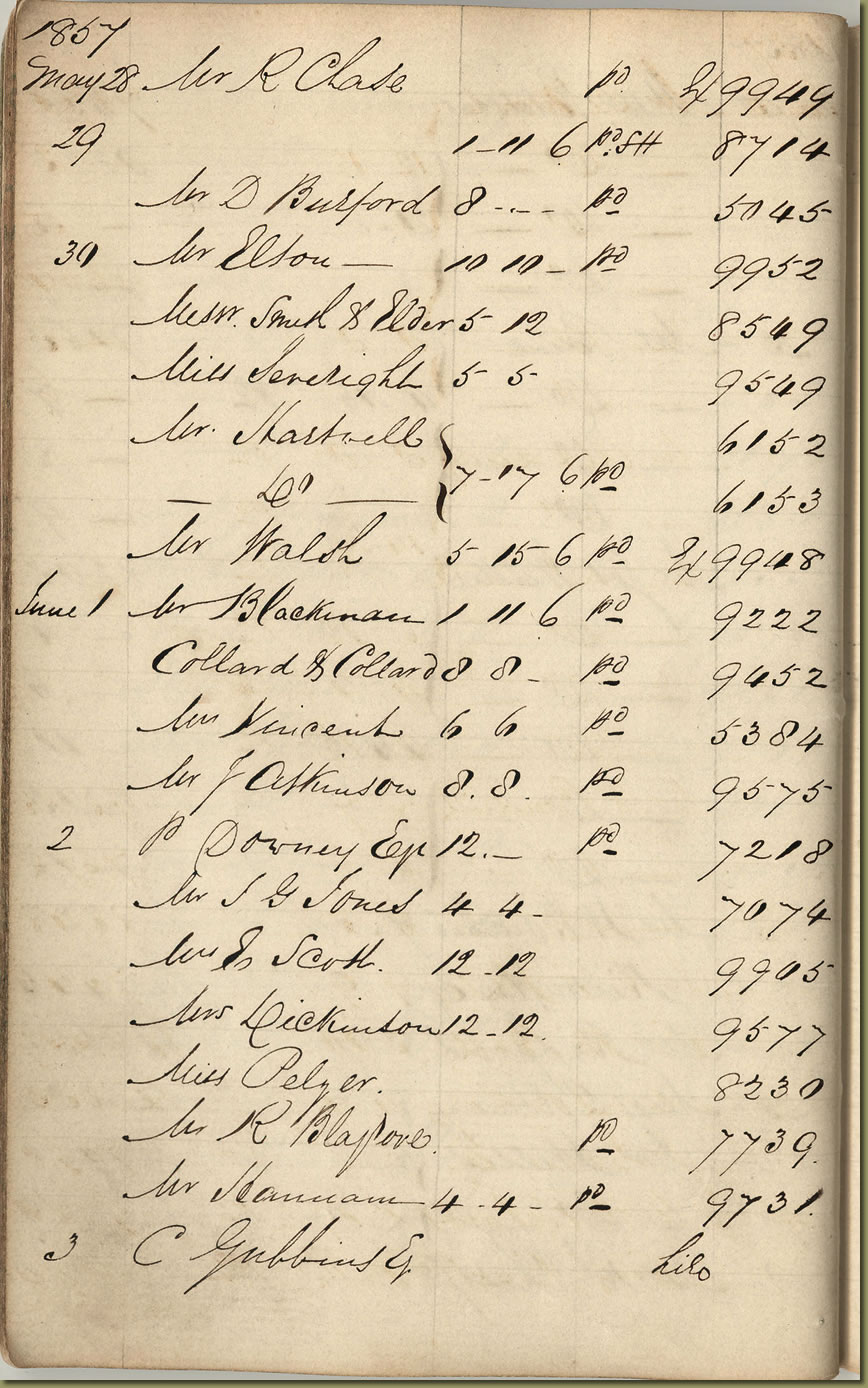 1857
May 28 Mr R Chase pd 49949
29 1-11 6 pd. SH 8714
Mr D Busford 8 - - - pd 5045
30 Mr Elson — 10 10 - pd 9952
Messr. Smith & Elder 5 12 8549
Miss Severight 5 5 9549
Mr. Hartwell 6152
— Do — } 7-17 6 pd 6153
Mr Walsh 5 15 6 pd 9948
June 1 Mr Blackman 1 11 6 pd 9222
Collard & Collard 8 8 - pd 9452
Mrs Vincent 6 6 pd 5384
Mr J Atkinson 8. 8. pd 9575
2 P Downey Esq 12. — pd 7218
Mr S G Jones 4 4 - 7074
Scott. 12 - 12 9905
Mrs Dickinson 12 - 12. 9577
Miss Pelzer. 8230
Mr R Blagrove. pd 7739.
Mr Hannam 4 - 4 - pd 9731.
3 C Gubbins Esq hire